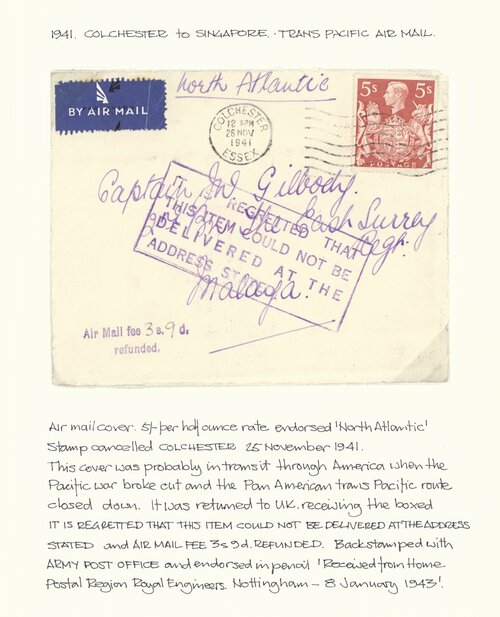 1941. COLCHESTER to SINGAPORE. TRANS PACIFIC AIR MAIL.
North Atlantic
BY AIR MAIL
COLCHESTER
12 PM
26 NOV
1941
ESSEX
5s 5s
POSTAGE
Captain Gilbody.
The East Surrey
Regt.
Malaya.
IT IS REGRETTED THAT
THIS ITEM COULD NOT BE
DELIVERED AT THE
ADDRESS STATED
Air Mail fee 3 s. 9 d.
refunded.
Air mail cover. 5/- per half ounce rate endorsed 'North Atlantic'
Stamp cancelled COLCHESTER 25 November 1941.
This cover was probably in transit through America when the
Pacific war broke out and the Pan American trans Pacific route
closed down. It was returned to U.K. receiving the boxed
IT IS REGRETTED THAT THIS ITEM COULD NOT BE DELIVERED AT THE ADDRESS
STATED and AIR MAIL FEE 3s 9d. REFUNDED. Backstamped with
ARMY POST OFFICE and endorsed in pencil 'Received from Home
Postal Region Royal Engineers. Nottingham - 8 January 1943'.